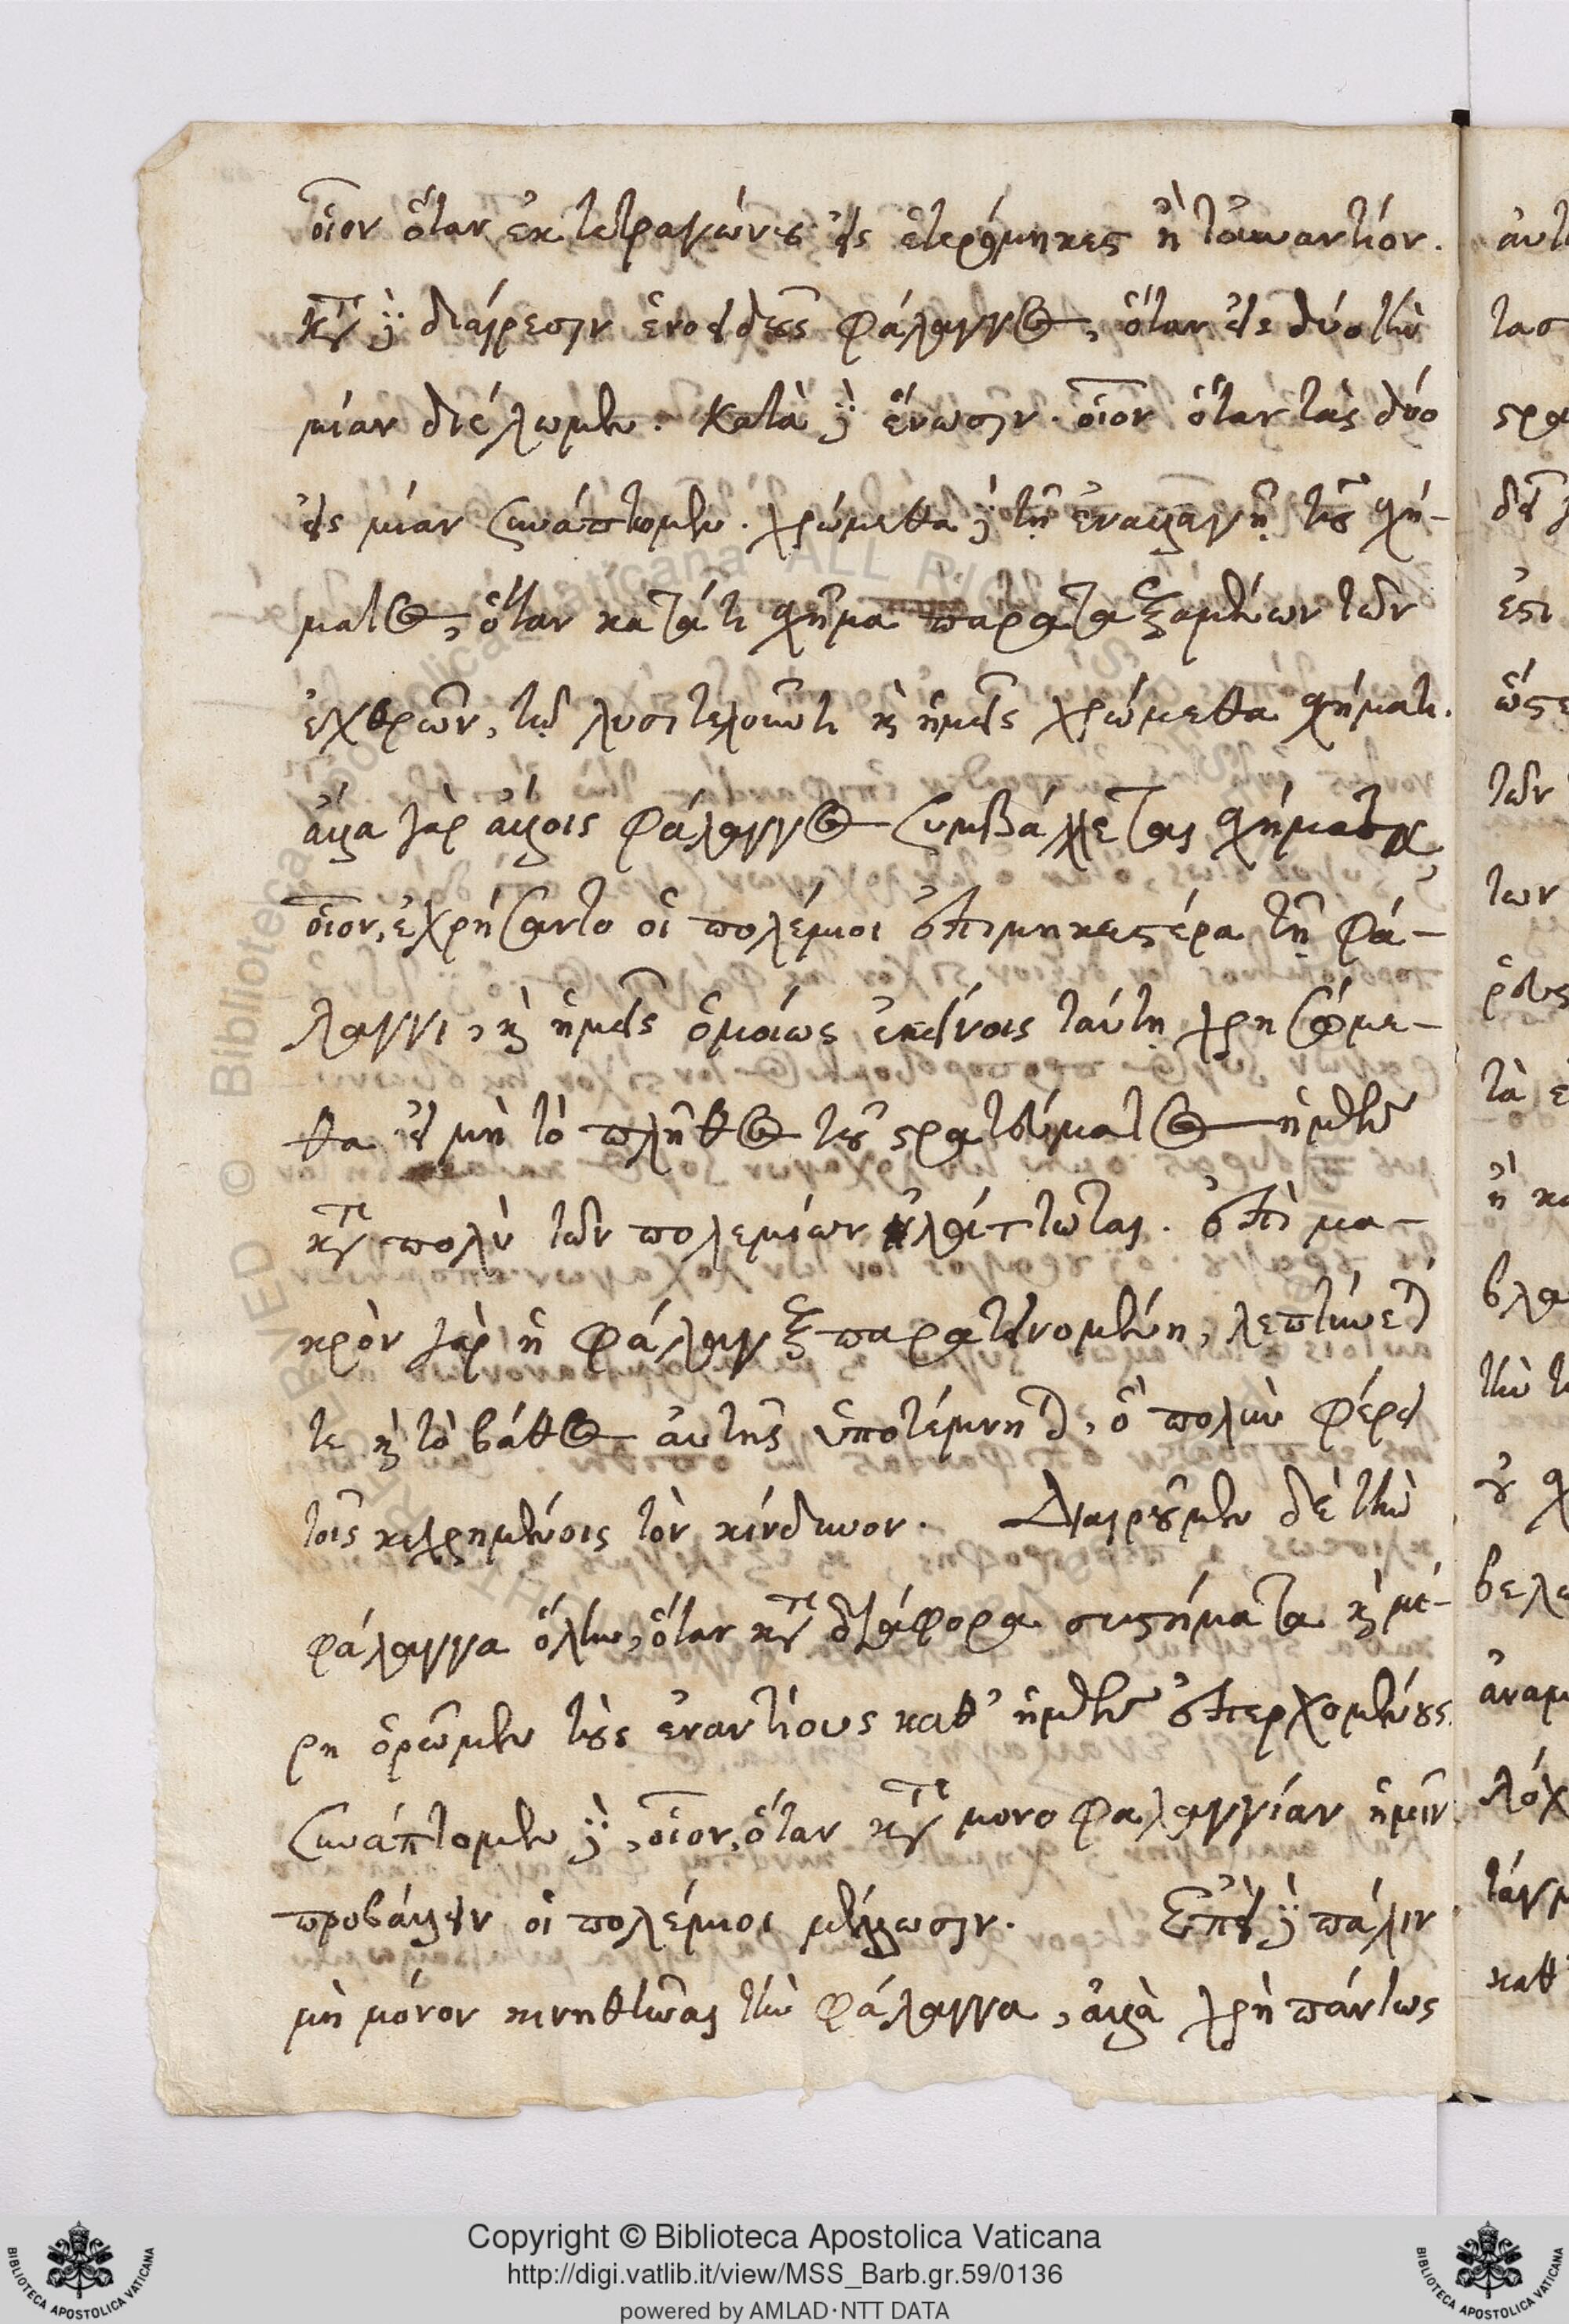 οἷον ὅταν ἐκ τετραγώνου εἰς ἑτερόμηκες ἢ τοὐναντίον.
κατὰ δὲ διαίρεσιν ἑνοειδοῦς φάλαγγος, ὅταν εἰς δύο τὴν
μίαν διέλωμεν. κατὰ δὲ ἕνωσιν. οἷον ὅταν τὰς δύο
εἰς μίαν συνάπτωμεν. χρώμεθα δὲ τῇ ἐναλλαγῇ τοῦ σχή-
ματος, ὅταν κατά τι σχῆμα παραταξαμένων τῶν
ἐχθρῶν, τῷ λυσιτελοῦντι καὶ ἡμεῖς χρώμεθα σχήματι.
ἄλλα γὰρ ἄλλοις φάλαγγος συμβάλλεται σχήματα,
οἷον, ἐχρήσαντο οἱ πολέμιοι ἐπιμηκεστέρα τῇ φά-
λαγγι, καὶ ἡμεῖς ὁμοίως ἐκείνοις ταύτῃ χρησόμε-
θα εἰ μὴ τὸ πλῆθος τοῦ στρατεύματος ἡμῶν
κατὰ πολὺ τῶν πολεμίων ἐλάττωται. ἐπὶ μα-
κρὸν γὰρ ἡ φάλαγξ παρατεινομένη, λεπτύνεται
τε καὶ τὸ βάθος αὐτῆς ὑποτέμνηται, ὃ πολὺν φέρει
τοῖς κεχρημένοις τὸν κίνδυνον. Διαιροῦμεν δὲ τὴν
φάλαγγα ὅλην, ὅταν κατὰ διάφορα συστήματα καὶ μέ-
ρη ὁρῶμεν τοὺς ἐναντίους καθ' ἡμῶν ἐπερχομένους.
συνάπτομεν δὲ, οἷον, ὅταν κατὰ μονοφαλαγγίαν ἡμῖν
προβάλλειν οἱ πολέμιοι μέλλωσιν. Ἐπεὶ δὲ πάλιν
μὴ μόνον κινηθῆναι τὴν φάλαγγα, ἀλλὰ χρὴ πάντως
Copyright © Biblioteca Apostolica Vaticana
http://digi.vatlib.it/view/MSS_Barb.gr.59/0136
powered by AMLAD·NTT DATA